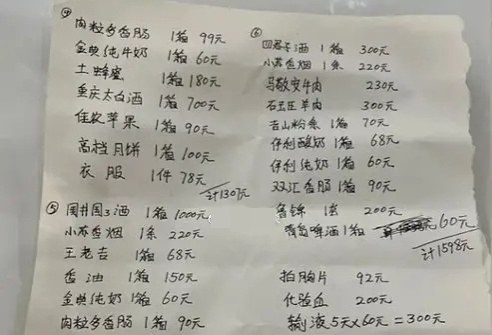 ④
肉粒多香肠 1箱 99元
金典纯牛奶 1箱 60元
土蜂蜜 1箱 180元
重庆太白酒 1箱 700元
佳苹果 1箱 90元
高档月饼 1箱 100元
衣服 1件 78元
计1307元
⑤ 国井国3酒 1箱 1000元
小苏香烟 1条 220元
王老吉 1箱 68元
香油 1箱 150元
金典纯奶 1箱 60元
肉粒多香肠 1箱 90元
⑥
四君子酒 1箱 300元
小苏香烟 1条 220元
马敬安牛肉 230元
石玉臣羊肉 300元
吉山粉条 1箱 70元
伊利酸奶 1箱 68元
伊利纯奶 1箱 60元
双汇香肠 1箱 90元
鲁锦 1套 200元
青岛啤酒 1箱 60元
计1598元
拍胸片 92元
化验血 200元
输液5天x60元=300元